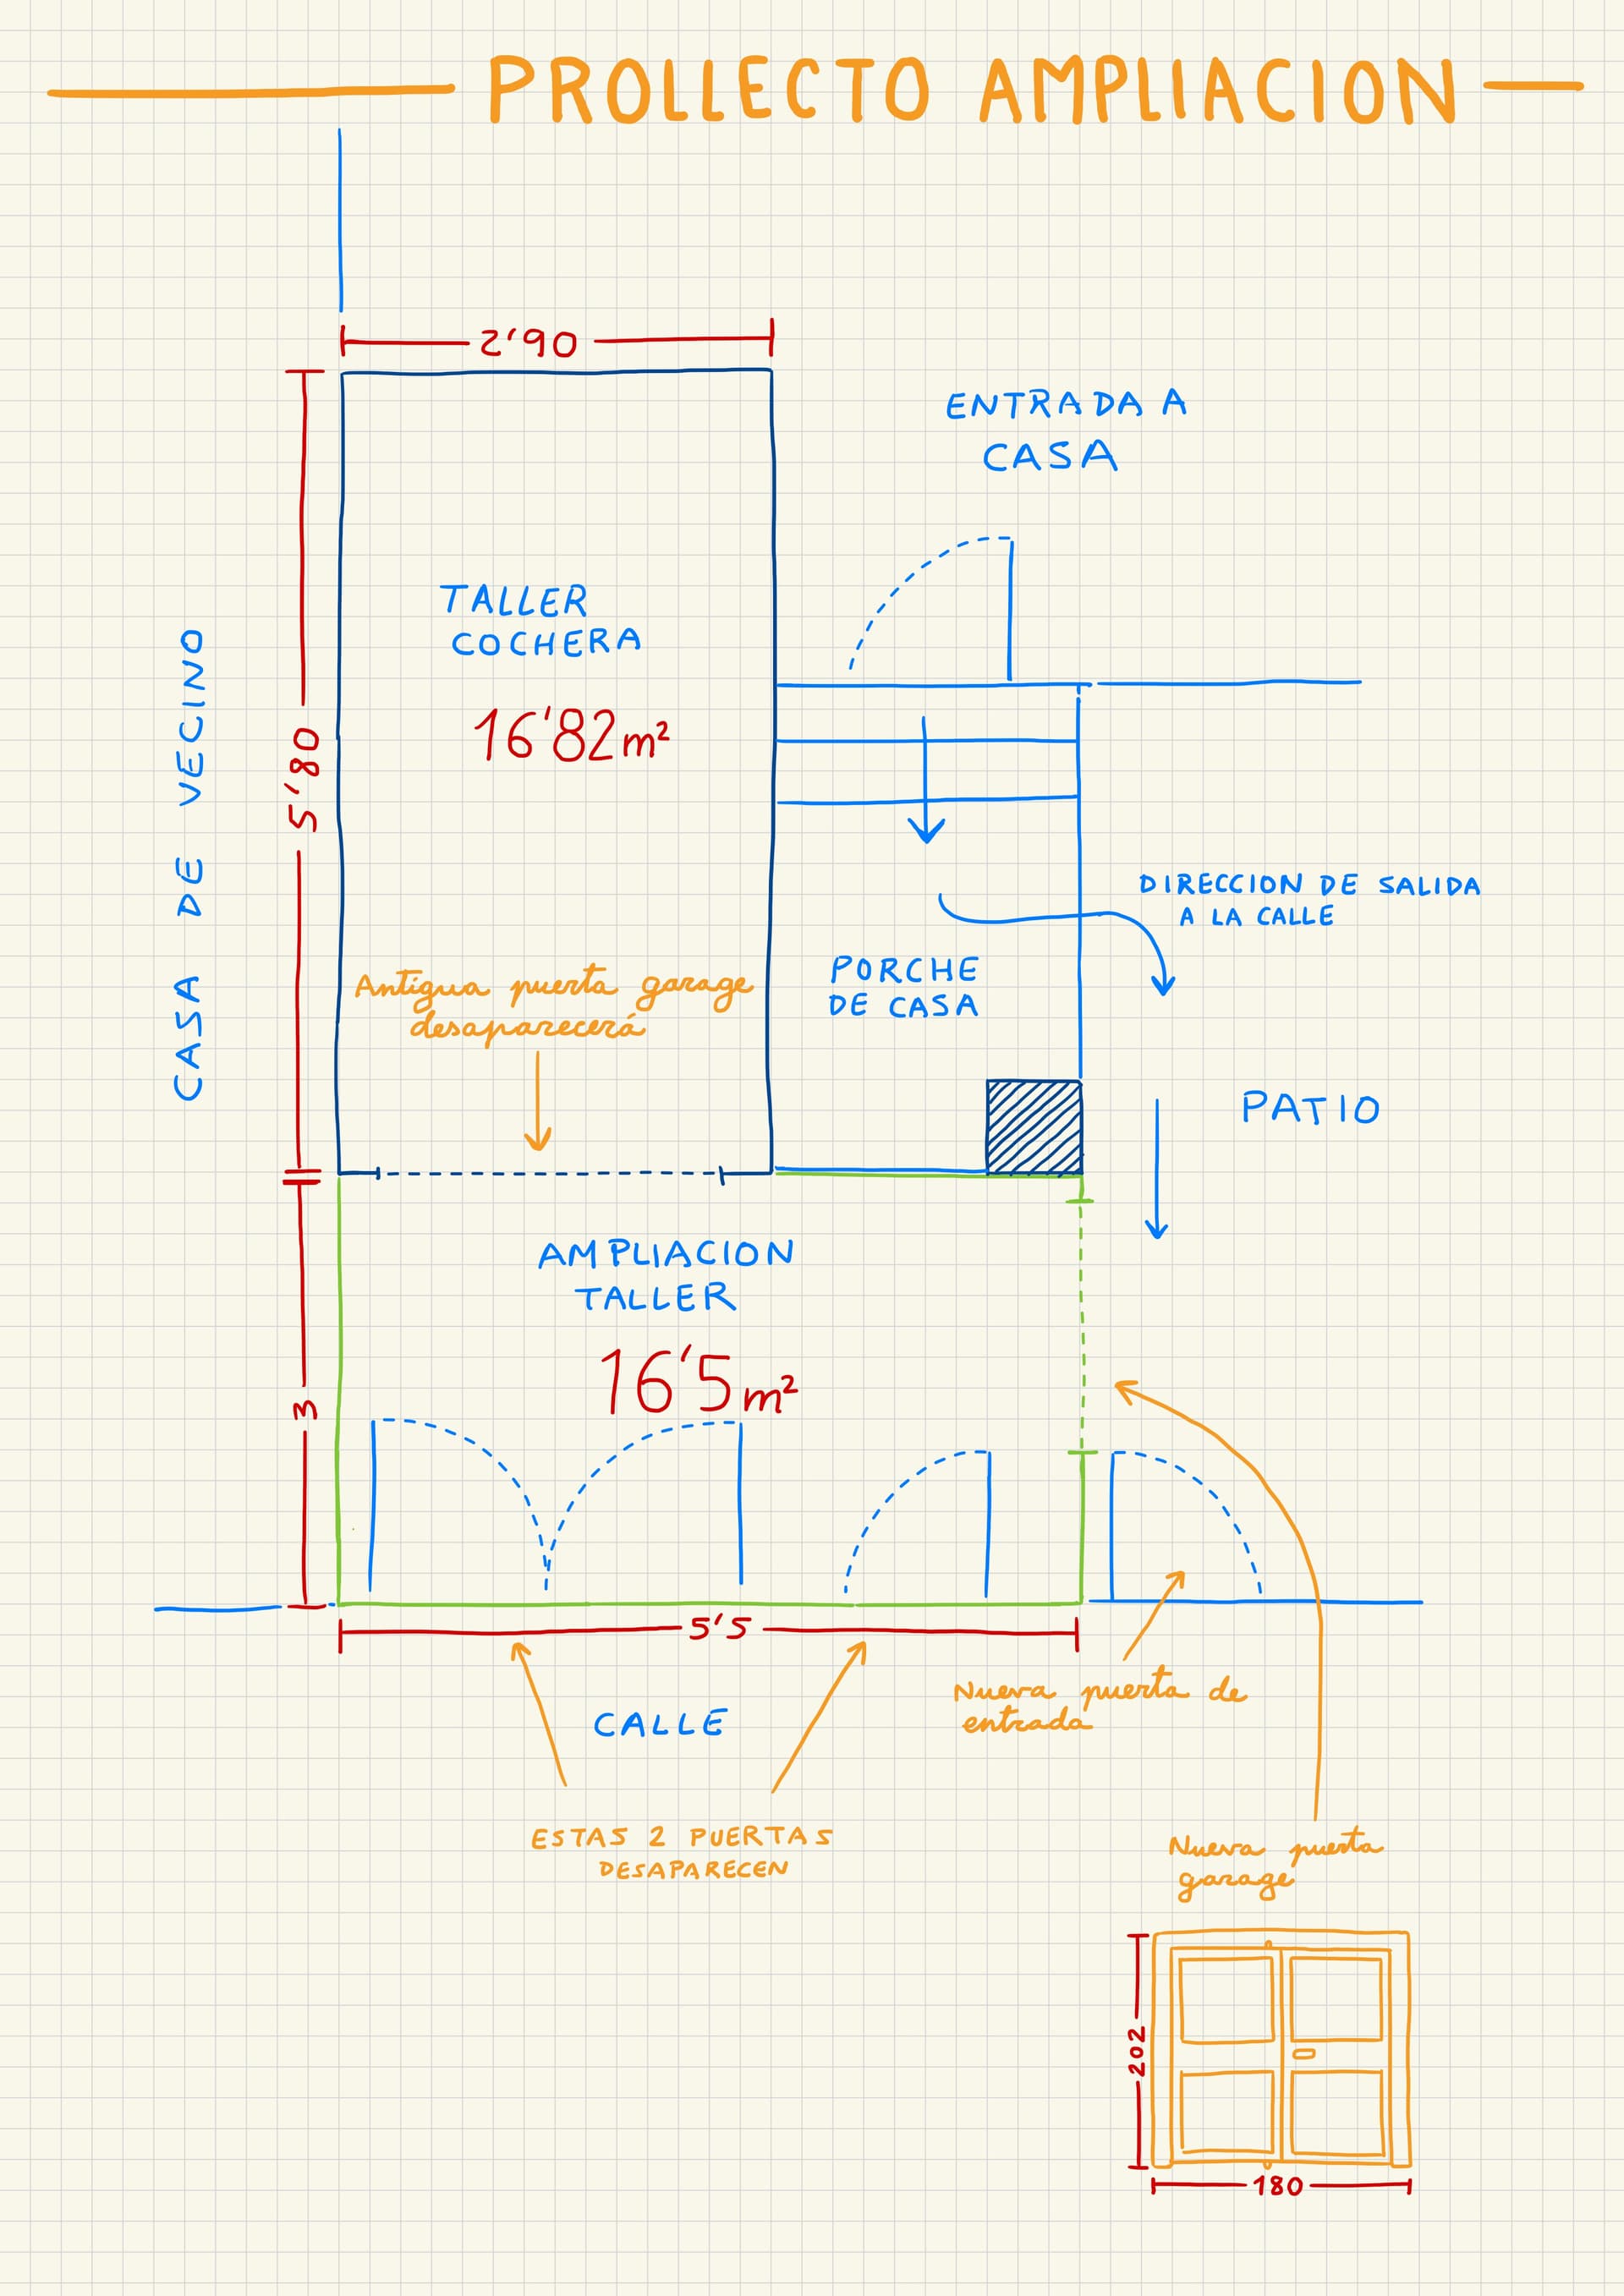 PROLLECTO AMPLIACION
2'90
ENTRADA A
CASA
TALLER
COCHERA
16'82 m²
CASA DE VECINO
5'80
DIRECCION DE SALIDA
A LA CALLE
PORCHE
DE CASA
Antigua puerta garage
desaparecerá
PATIO
AMPLIACION
TALLER
16'5 m²
3
5'5
CALLE
Nueva puerta de
entrada
ESTAS 2 PUERTAS
DESAPARECEN
Nueva puerta
garage
202
180